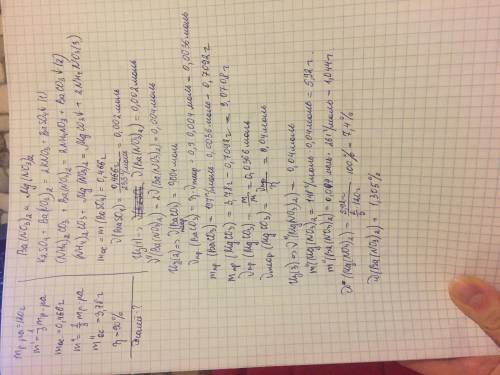 m р.ра=120г
m' = 1/3 m р.ра
m ос = 0,466г
m'' = 2/3 m р.ра
m'' ос = 3,78г
η = 90%
Ba(NO3)2 и Mg(NO3)2
K2SO4 + Ba(NO3)2 = 2KNO3 + BaSO4↓ (1)
(NH4)2CO3 + Ba(NO3)2 = 2NH4NO3 + BaCO3↓ (2)
(NH4)2CO3 + Mg(NO3)2 = MgCO3↓ + 2NH4NO3 (3)
m ос = m(BaSO4) = 0,466г
ν(BaSO4) = 0,466г / 233г/моль = 0,002моль
Из(1) => ν(Ba(NO3)2) = 0,002моль
ν''(Ba(NO3)2) = 2ν'(Ba(NO3)2) = 0,004моль
Из(2) => ν(BaCO3) = 0,004моль
ν пр(BaCO3) = η·ν теор = 0,9·0,004моль = 0,0036моль
m пр(BaCO3) = 197г/моль·0,0036моль = 0,7092г
m пр(MgCO3) = 3,78г - 0,7092г = 3,0708г
ν пр(MgCO3) = m/M = 0,0366моль
ν теор(MgCO3) = ν пр/η = 0,04моль
Из(3) => ν(Mg(NO3)2) = 0,04моль
m''(Mg(NO3)2) = 148г/моль·0,04моль = 5,92г
m''(Ba(NO3)2) = 0,004моль·261г/моль = 1,044г
ω(Mg(NO3)2) = 5,92г / 2/3·120г · 100% = 7,4%
ω(Ba(NO3)2) = 1,305%